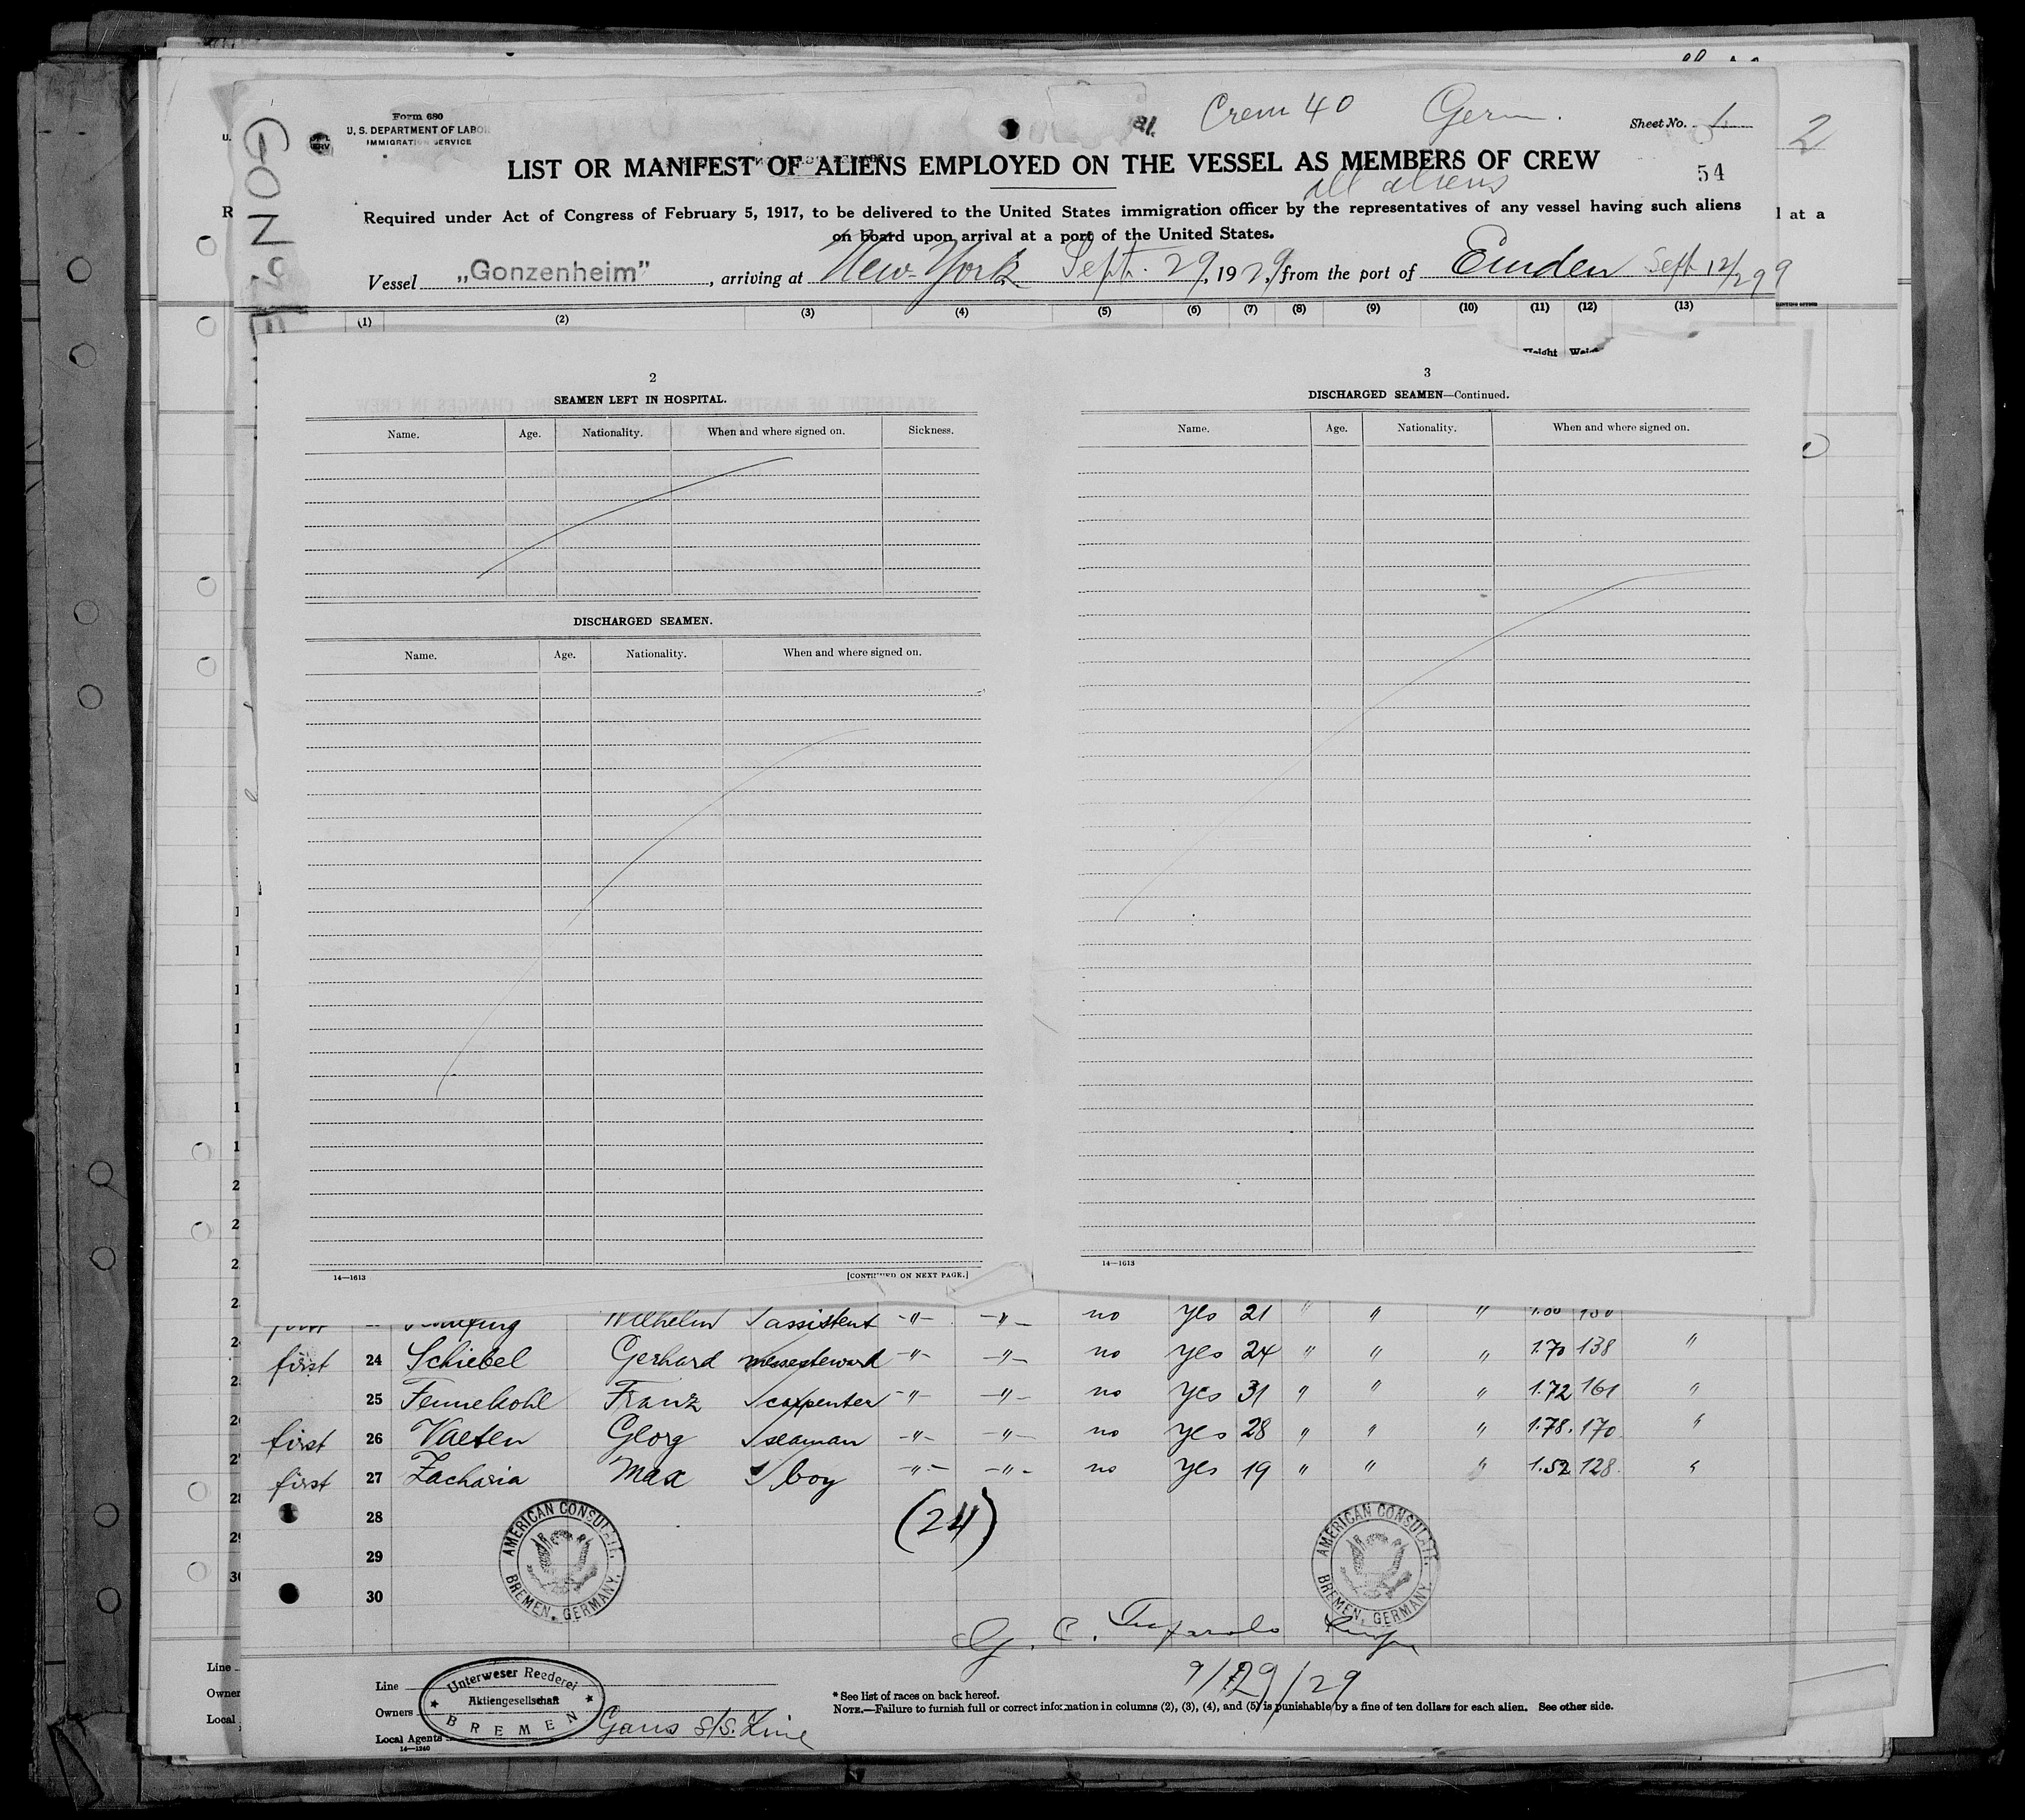 Form 680
U. S. DEPARTMENT OF LABOR
IMMIGRATION SERVICE
Crew 40 Germ.
Sheet No. 1
2
54
LIST OR MANIFEST OF ALIENS EMPLOYED ON THE VESSEL AS MEMBERS OF CREW
all aliens
Required under Act of Congress of February 5, 1917, to be delivered to the United States immigration officer by the representatives of any vessel having such aliens
on board upon arrival at a port of the United States.
Vessel „Gonzenheim”, arriving at New-York Sept. 29, 1929, from the port of Emden Sept 12/29
(1) (2) (3) (4) (5) (6) (7) (8) (9) (10) (11) (12) (13)
2
SEAMEN LEFT IN HOSPITAL.
Name. Age. Nationality. When and where signed on. Sickness.
DISCHARGED SEAMEN.
Name. Age. Nationality. When and where signed on.
14—1613 [CONTINUED ON NEXT PAGE.]
3
DISCHARGED SEAMEN—Continued.
Name. Age. Nationality. When and where signed on.
14—1613
Wilhelm assistent -"- -"- no yes 21 " " "
first 24 Schiebel Gerhard messesteward -"- -"- no yes 24 " " " 1.70 138 "
25 Fennekohl Franz carpenter -"- -"- no yes 31 " " " 1.72 161 "
first 26 Vaeten Georg seaman -"- -"- no yes 28 " " " 1.78. 170 "
first 27 Zacharia Max boy -"- -"- no yes 19 " " " 1.52 128. "
28
(24)
29
30
AMERICAN CONSULATE, BREMEN, GERMANY.
AMERICAN CONSULATE, BREMEN, GERMANY.
9/29/29
Line
Owners
Local Agents
Unterweser Reederei
Aktiengesellschaft
BREMEN
Gans S/S. Line
14—1240
* See list of races on back hereof.
NOTE.—Failure to furnish full or correct information in columns (2), (3), (4), and (5) is punishable by a fine of ten dollars for each alien. See other side.